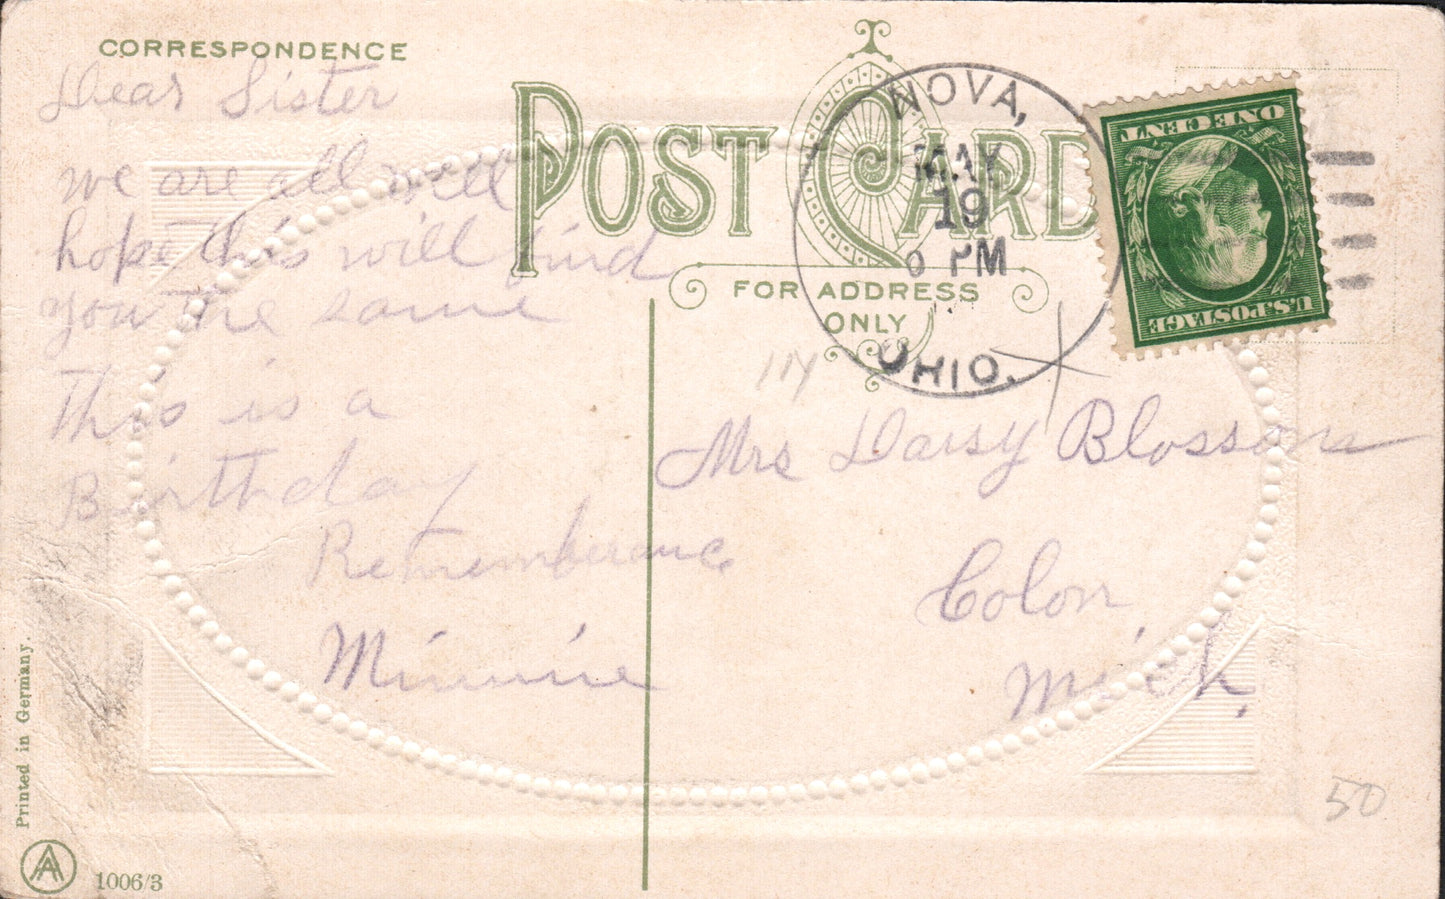 CORRESPONDENCE
Dear Sister
we are all well
hope this will find
you the same
This is a
Birthday
Rememberance
Minnie
POST CARD
FOR ADDRESS
ONLY
NOVA,
MAY
19
PM
OHIO.
ONE CENT
U.S. POSTAGE
114
Mrs Daisy Blossom
Colon
Mich,
50
Printed in Germany.
AA
1006/3